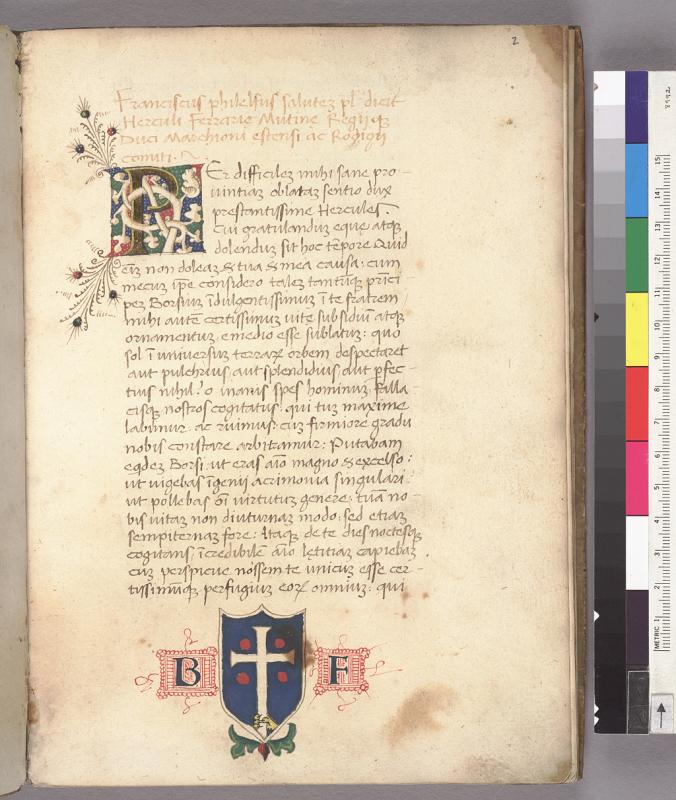 2
Franciscus philelfus salutez pl. dicit
Herculi Ferrarie Mutine Regiiq
Duci Marchioni estensi ac Rodigii
comiti.
PEr difficilez mihi sane pro-
uintiaz oblataz sentio dux
prestantissime Hercules.
Cui gratulanduz eque atq
dolenduz sit hoc tēpore Quid
eīz non doleaz & tua & mea causa: cum
mecuz ipe considero talez tantuqz prīci
pez Borsiuz īdulgentissimuz ī te fratrem
mihi autē certissimuz uite subsidiū atqz
ornamentuz e medio esse sublatuz: quo
sol ī uniuersuz terrarꝝ orbem despectaret
aut pulchrius aut splendidius aut pfec-
tius nihil. o inanis spes hominuz falla
cisqz nostros cogitatus: qui tuz maxime
labimur ac ruimus: cuz firmiore gradu
nobis constare arbitramur: Putabam
eqdez Borsi: ut eras aīo magno & excelso:
ut uigebas īgenii acrimonia singulari
ut pollebas oī uirtutuz genere: tuā no-
bis uitaz non diuturnaz modo: sed etiaz
sempiternaz fore: Itaqz de te dies noctesqz
cogitans īcredibilē aīo letitiaz capiebaz
cuz perspicue nossem te unicuz esse cer-
tissimūqz perfugiuz eorꝝ omniuz: qui
B F
METRIC 1 2 3 4 5 6 7 8 9 10 11 12 13 14 15